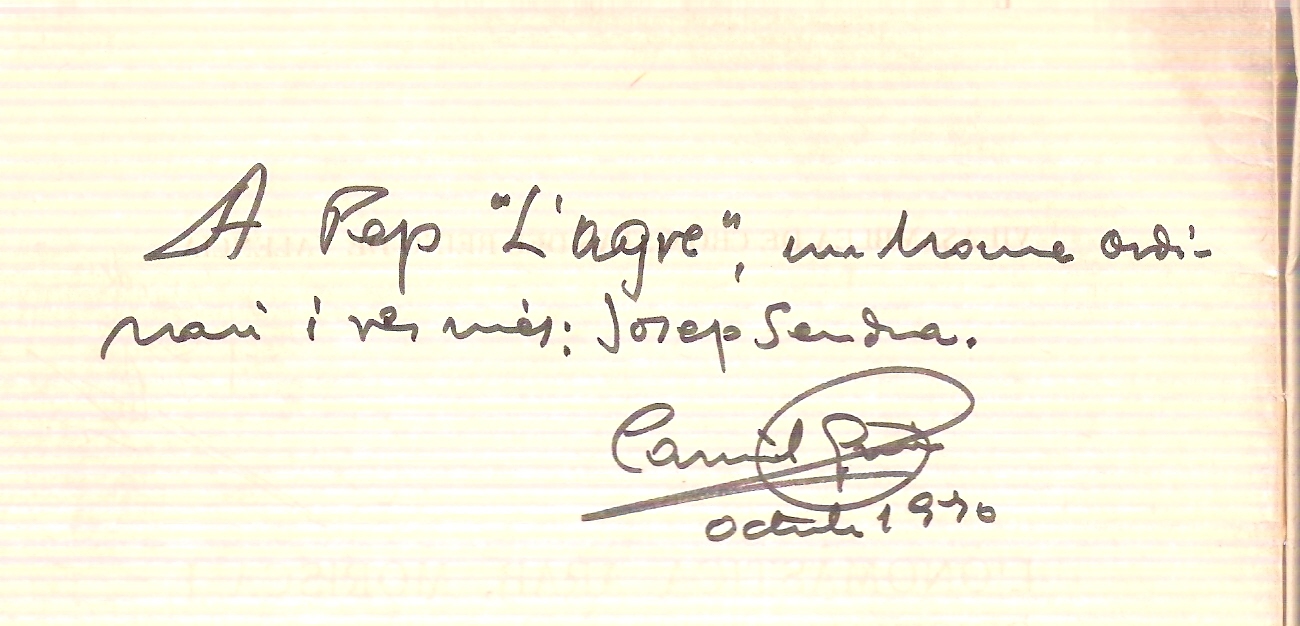 A Pep "L'agre", un home ordi-
nari i res més: Josep Sendra.
Carmel
octubre 1990